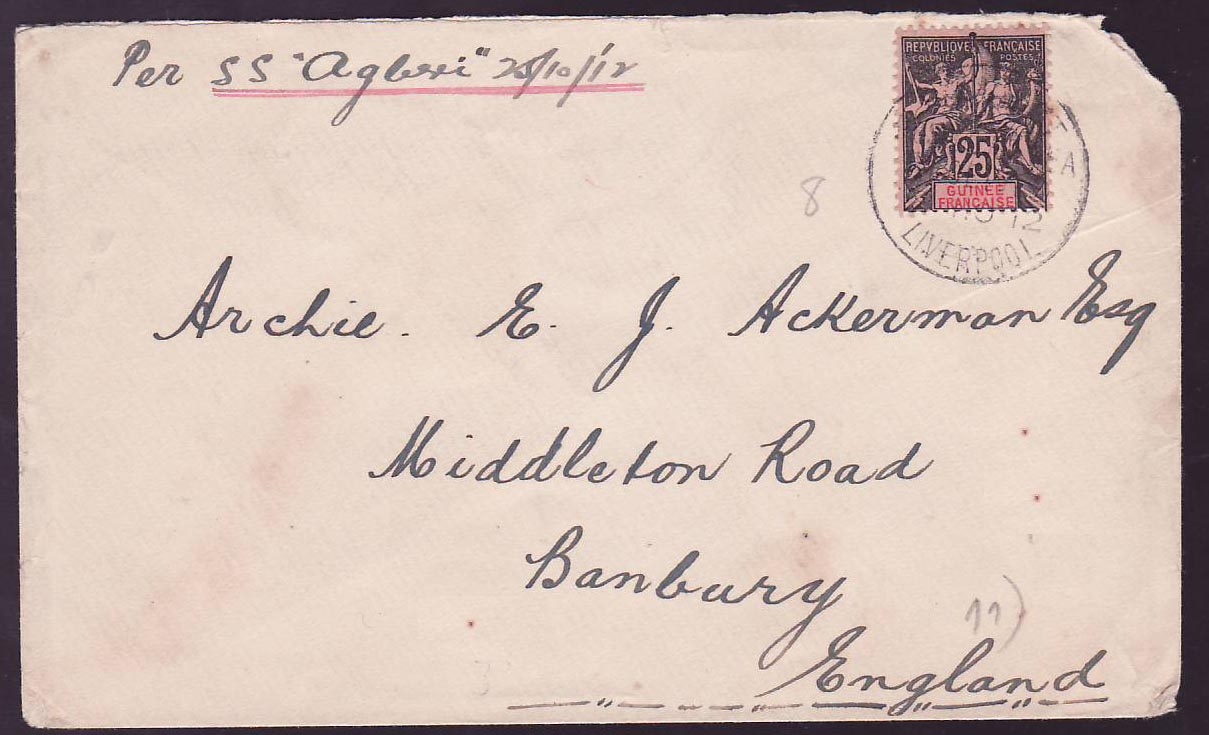 Per SS "Agberi" 25/10/12
REPVBLIQVE FRANÇAISE
COLONIES POSTES
25
GUINÉE
FRANÇAISE
12
LIVERPOOL
8
Archie. E. J. Ackerman Esq
Middleton Road
Banbury
11)
England